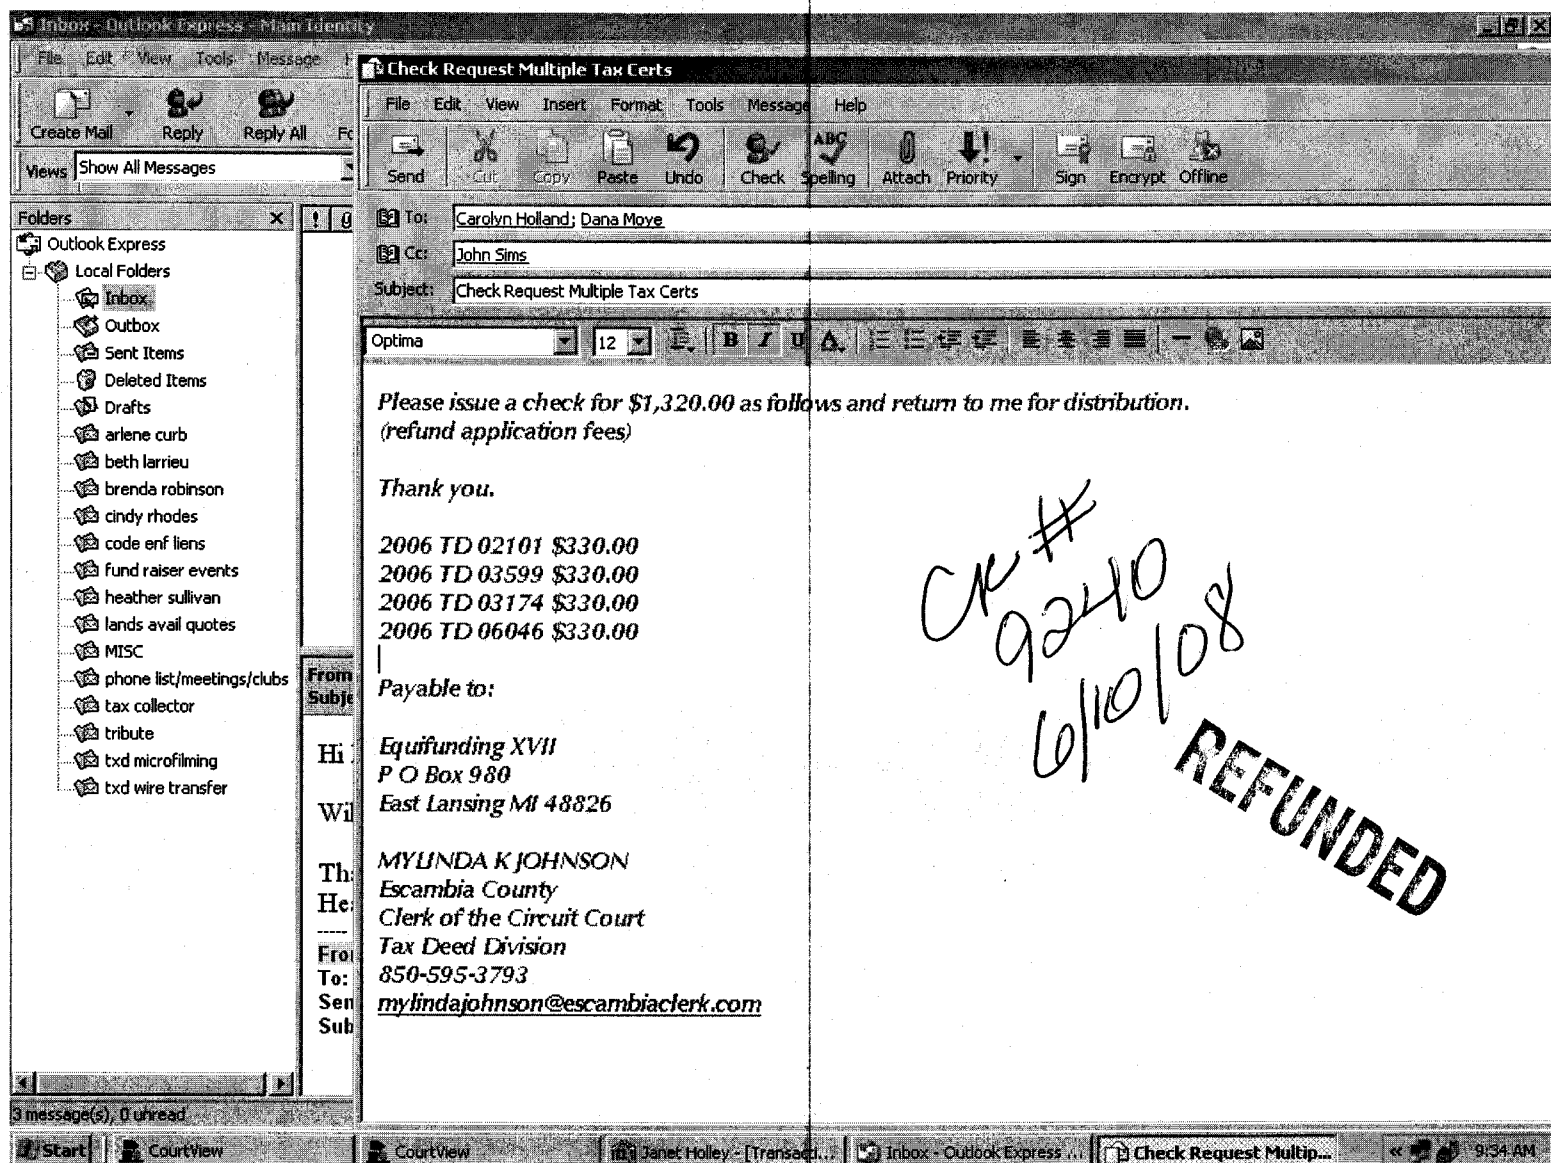 Inbox - Outlook Express - Main Identity
File Edit View Tools Message
Create Mail Reply Reply All
Views Show All Messages
Folders
Outlook Express
Local Folders
Inbox
Outbox
Sent Items
Deleted Items
Drafts
arlene curb
beth larrieu
brenda robinson
cindy rhodes
code enf liens
fund raiser events
heather sullivan
lands avail quotes
MISC
phone list/meetings/clubs
tax collector
tribute
txd microfilming
txd wire transfer
3 message(s), 0 unread
From
Subje
Hi
Wil
Tha
Hea
-----
From
To:
Sen
Sub
Check Request Multiple Tax Certs
File Edit View Insert Format Tools Message Help
Send Cut Copy Paste Undo Check Spelling Attach Priority Sign Encrypt Offline
To: Carolyn Holland; Dana Moye
Cc: John Sims
Subject: Check Request Multiple Tax Certs
Optima 12 B I U A
Please issue a check for $1,320.00 as follows and return to me for distribution.
(refund application fees)
Thank you.
2006 TD 02101 $330.00
2006 TD 03599 $330.00
2006 TD 03174 $330.00
2006 TD 06046 $330.00
Payable to:
Equifunding XVII
P O Box 980
East Lansing MI 48826
MYLINDA K JOHNSON
Escambia County
Clerk of the Circuit Court
Tax Deed Division
850-595-3793
mylindajohnson@escambiaclerk.com
CK #
9240
6/10/08
REFUNDED
Start CourtView CourtView Janet Holley - [Transacti... Inbox - Outlook Express ... Check Request Multip... « 9:34 AM